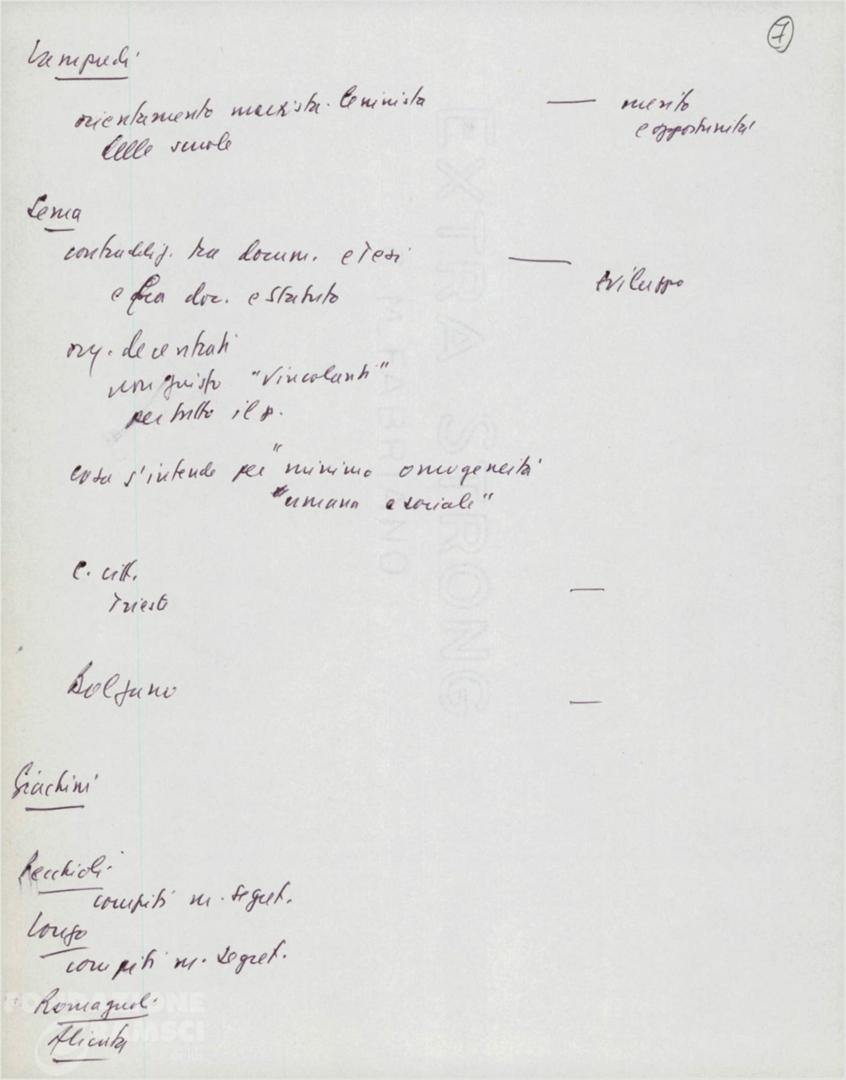 7
Lampredi
orientamento marxista-leninista — merito
delle scuole e opportunità
Sema
contraddiz. tra docum. e Tesi — sviluppo
e fra doc. e statuto
org. decentrati
non giusto "vincolanti"
per tutto il p.
cosa s'intende per "minimo omogeneità
"umana e sociale"
C. citt. —
Trieste
Bolzano —
Giachini
Pecchioli
compiti m. segret.
Longo
compiti m. segret.
Romagnoli
Alicata
EXTRA STRONG
M. FABRIANO
FONDAZIONE
GRAMSCI